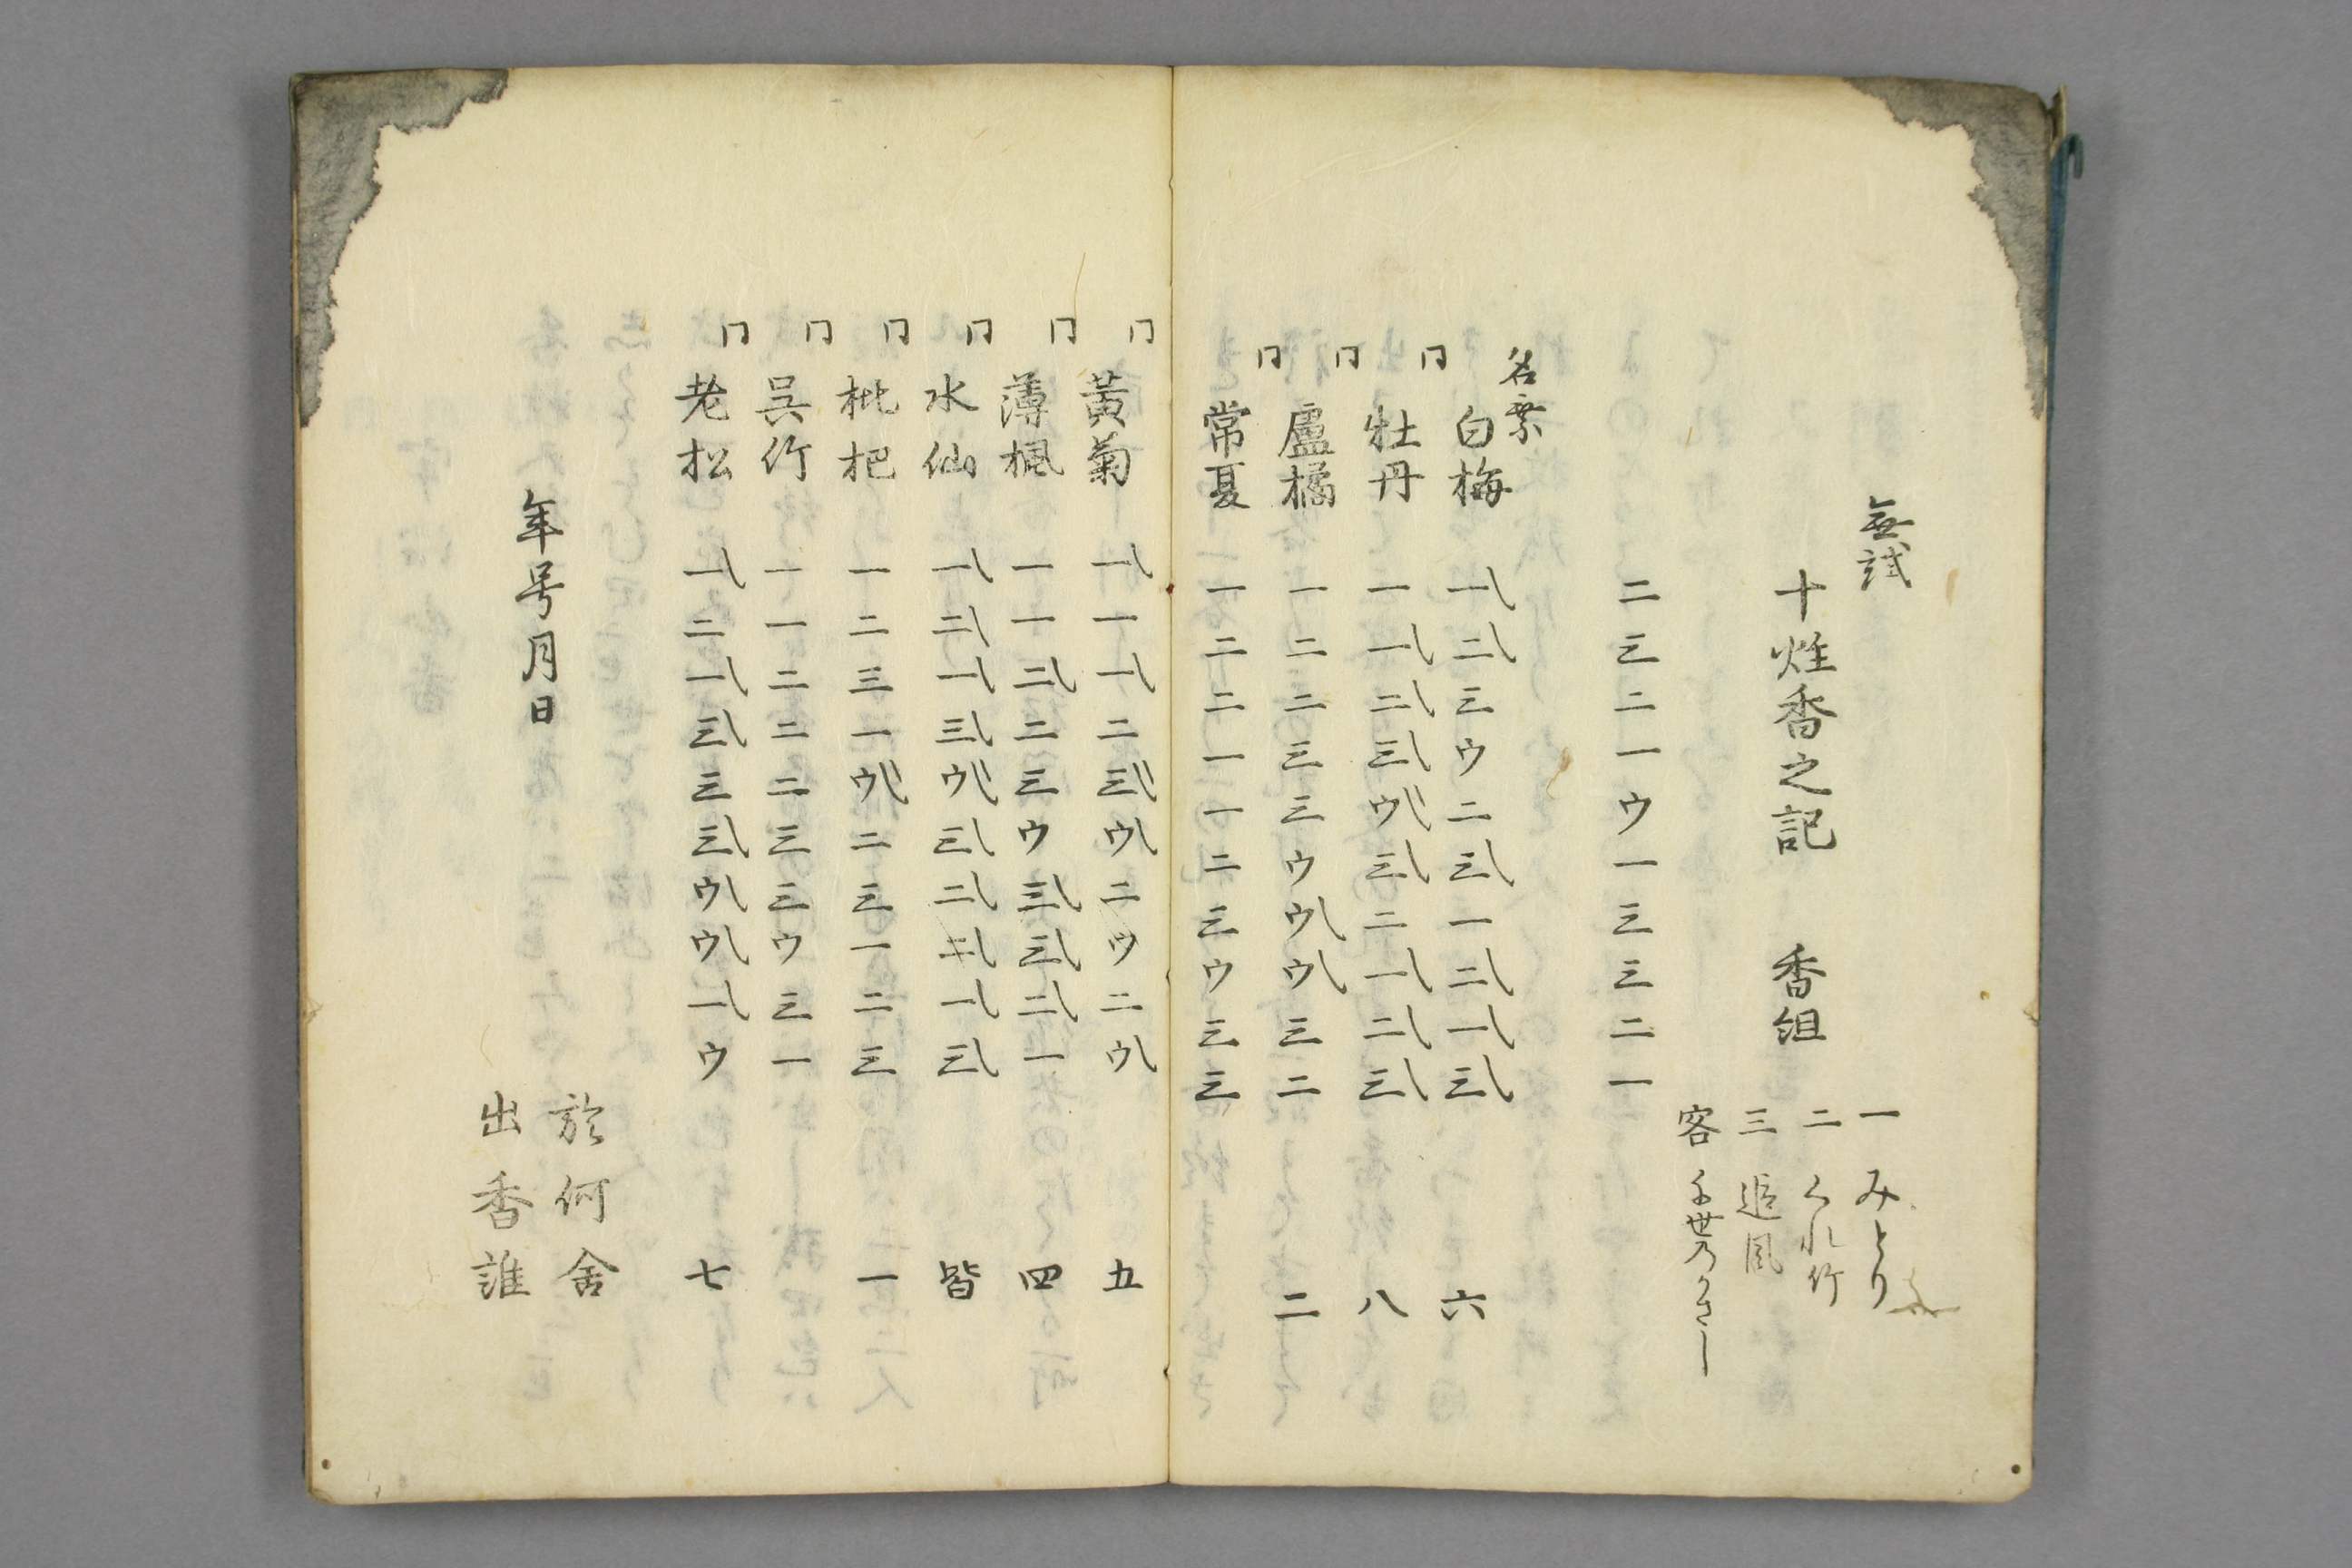 無試
十炷香之記　香組
一　みとり
二　くれ竹
三　追風
客　千世乃かさし
二三二一ウ一三三二一
名乗　白梅　一二三ウ二三一二一三　六
同　牡丹　一一二三ウ三二一二三　八
同　盧橘　一二二三三ウウウ三二　二
同　常夏　一二二一一二三ウ三三
同　黄菊　一一一二三ウ二ウ二ウ　五
同　薄楓　一一二二三ウ三三二一　四
同　水仙　一二一三ウ三二二一三　皆
同　枇杷　一二三一ウ二三一二三　一
同　呉竹　一一二二二三三ウ三一
同　老松　一二一三三三ウウ一ウ　七
年号月日
於何舍
出香誰